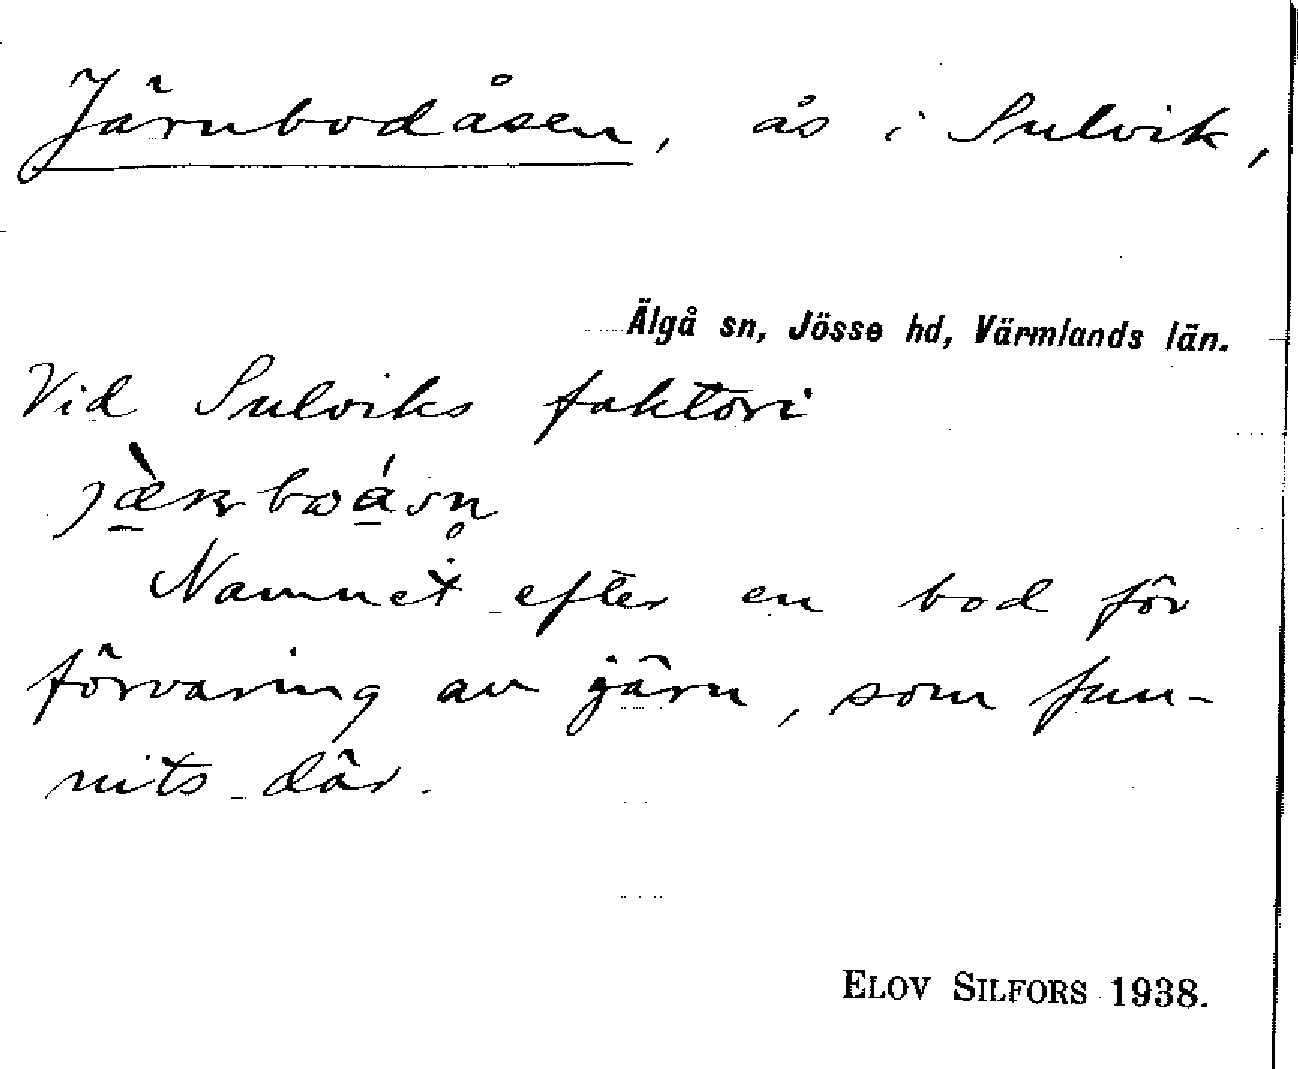 Järnbodåsen, ås i Sulvik,
Älgå sn, Jösse hd, Värmlands län.
Vid Sulviks faktori
Namnet efter en bod för
förvaring av järn, som fun-
nits där.
ELOV SILFORS 1938.